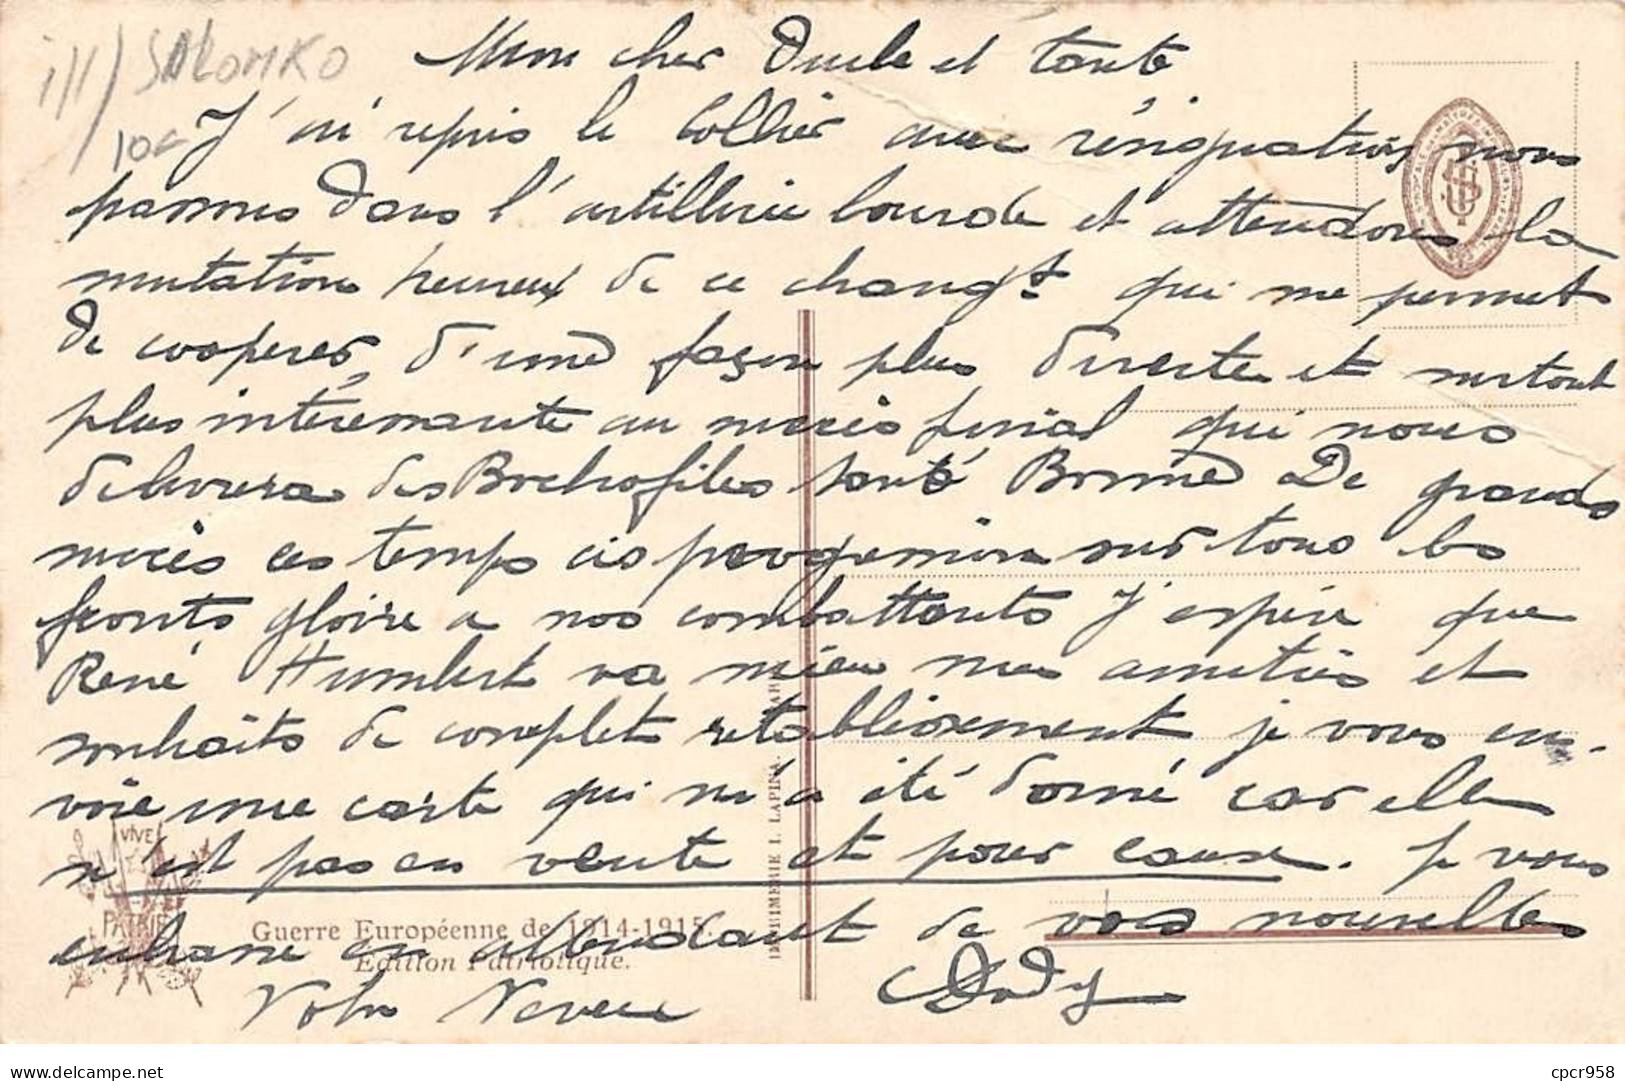 ill/ SALOMKO
10c
Mon cher Oncle et tante
J'ai repris le collier avec résignation nous
passons dans l'artillerie lourde et attendons la
mutation heureux de ce changt. qui me permet
de cooperer d'une façon plus directe et surtout
plus intéressante au succès final qui nous
delivrera des Bochofiles santé Bonne De grands
succès ces temps ci progression sur tous les
fronts gloire a nos combattants J'espére que
René Humbert va mieu mes amitiés et
souhaits de complet retablissement je vous en-
voie une carte qui m'a été donné car elle
n'est pas en vente et pour cause. Je vous
embrasse en attendant de vos nouvelles
Votre Neveu Dody
VIVE
PATRIE
Guerre Européenne de 1914-1915.
Edition Patriotique.
IMPRIMERIE I. LAPINA. PARIS
cpcr958